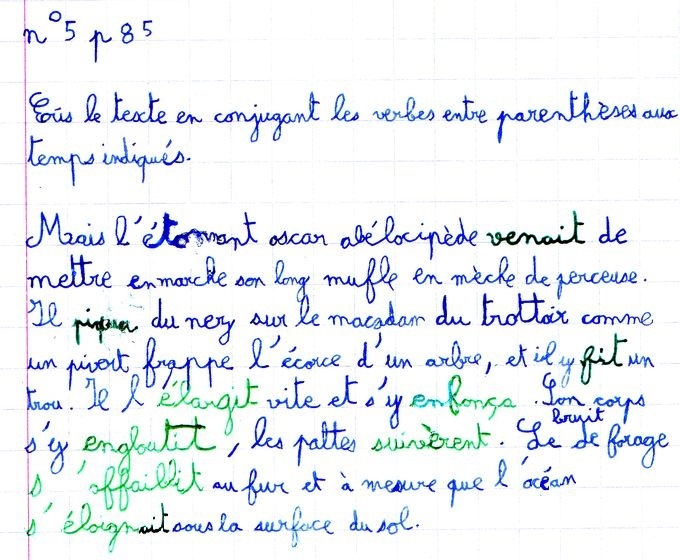 n°5 p 85
Ecris le texte en conjugant les verbes entre parenthèses aux
temps indiqués.
Mais l'étonnant oscar abélocipède venait de
mettre en marche son long mufle en mèche de perceuse.
Il piqua du nez sur le macadam du trottoir comme
un pivert frappe l'écorce d'un arbre, et il y fit un
trou. Il l'élargit vite et s'y enfonça. Son corps
s'y engloutit, les pattes suivèrent. Le bruit de forage
s'affaiblit au fur et à mesure que l'océan
s'éloignait sous la surface du sol.